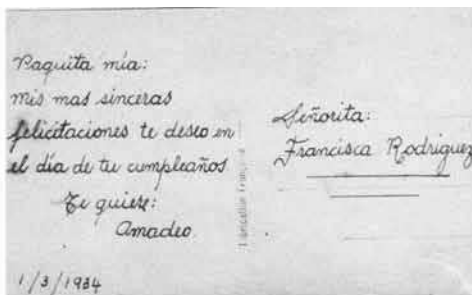 Paquita mía:
mis mas sinceras
felicitaciones te deseo en
el día de tu cumpleaños.
Te quiere:
Amadeo.
1/3/1934
Señorita:
Francisca Rodriguez